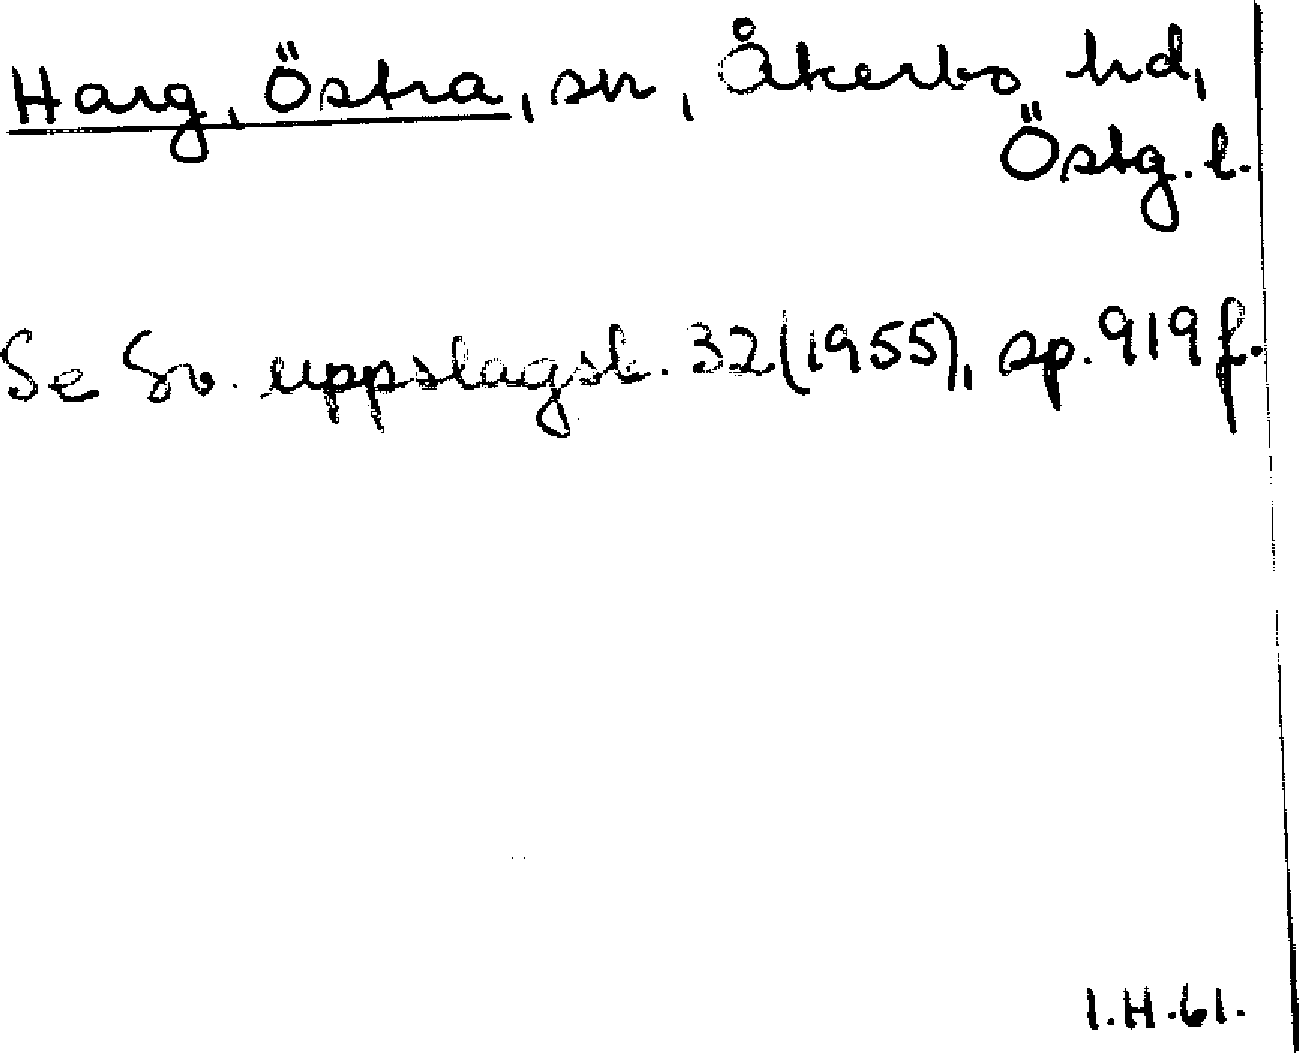 Harg, Östra, sn, Åkerbo hd,
Östg. l.
Se Sv. uppslagsb. 32 (1955), sp. 919 f.
I.H.61.